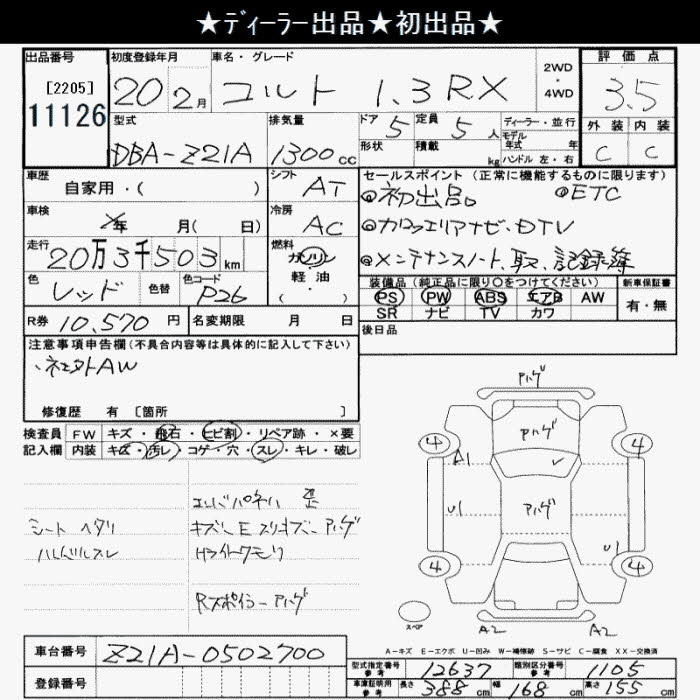 ★ディーラー出品★初出品★
出品番号
[2205]
11126
初度登録年月
20 2月
車名・グレード
コルト 1.3 RX
2WD
・
4WD
評価点
3.5
型式
DBA-Z21A
排気量
1300cc
ドア 5
定員 5人
形状
積載 kg
ディーラー・並行
モデル年式 年
ハンドル 左・右
外装 内装
C C
車歴
自家用・( )
シフト AT
車検
年 月( 日)
冷房 AC
走行
20万3千503km
燃料
ガソリン
軽・油
・
( )
色
レッド
色替
色コード
P26
セールスポイント(正常に機能するものに限ります)
◎初出品 ◎ETC
◎カロッエリアナビ、DTV
◎メンテナンスノート、取、記録簿
装備品(純正品に限り○をつけてください)
PS PW ABS エアB AW
SR ナビ TV カワ
新車保証書
有・無
R券 10,570円
名変期限 月 日
後日品
注意事項申告欄(不具合内容等は具体的に記入して下さい)
修復歴 有 [箇所 ]
検査員
記入欄
FW キズ・飛石・ヒビ割・リペア跡・×要
内装 キズ・汚レ・コゲ・穴・スレ・キレ・破レ
シート ヘタリ
ハンドルスレ
キズ・E スリキズ アハゲ
Rスポイラーアハゲ
アハゲ
アハゲ
アハゲ
4 4
A1
U1
U1
4 4
スペア
A2 A2
A-キズ E-エクボ U-凹み W-補修跡 S-サビ C-腐食 XX-交換済
車台番号 Z21A-0502700
登録番号
型式指定番号
参考
12637
類別区分番号
参考
1105
車庫証明用
参考
長さ 388cm 幅 168cm 高さ 155cm